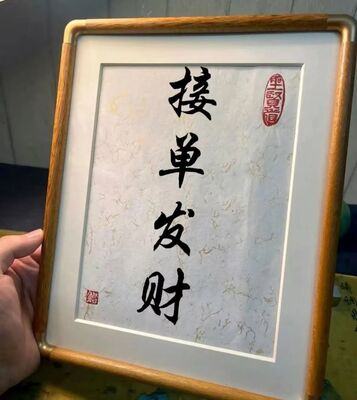 接单发财